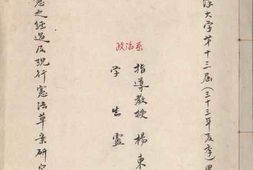 大学第十三届(三十三年度夏季)畢
政治系
指導教授 楊東
学生
憲之經過及現行憲法草案研究